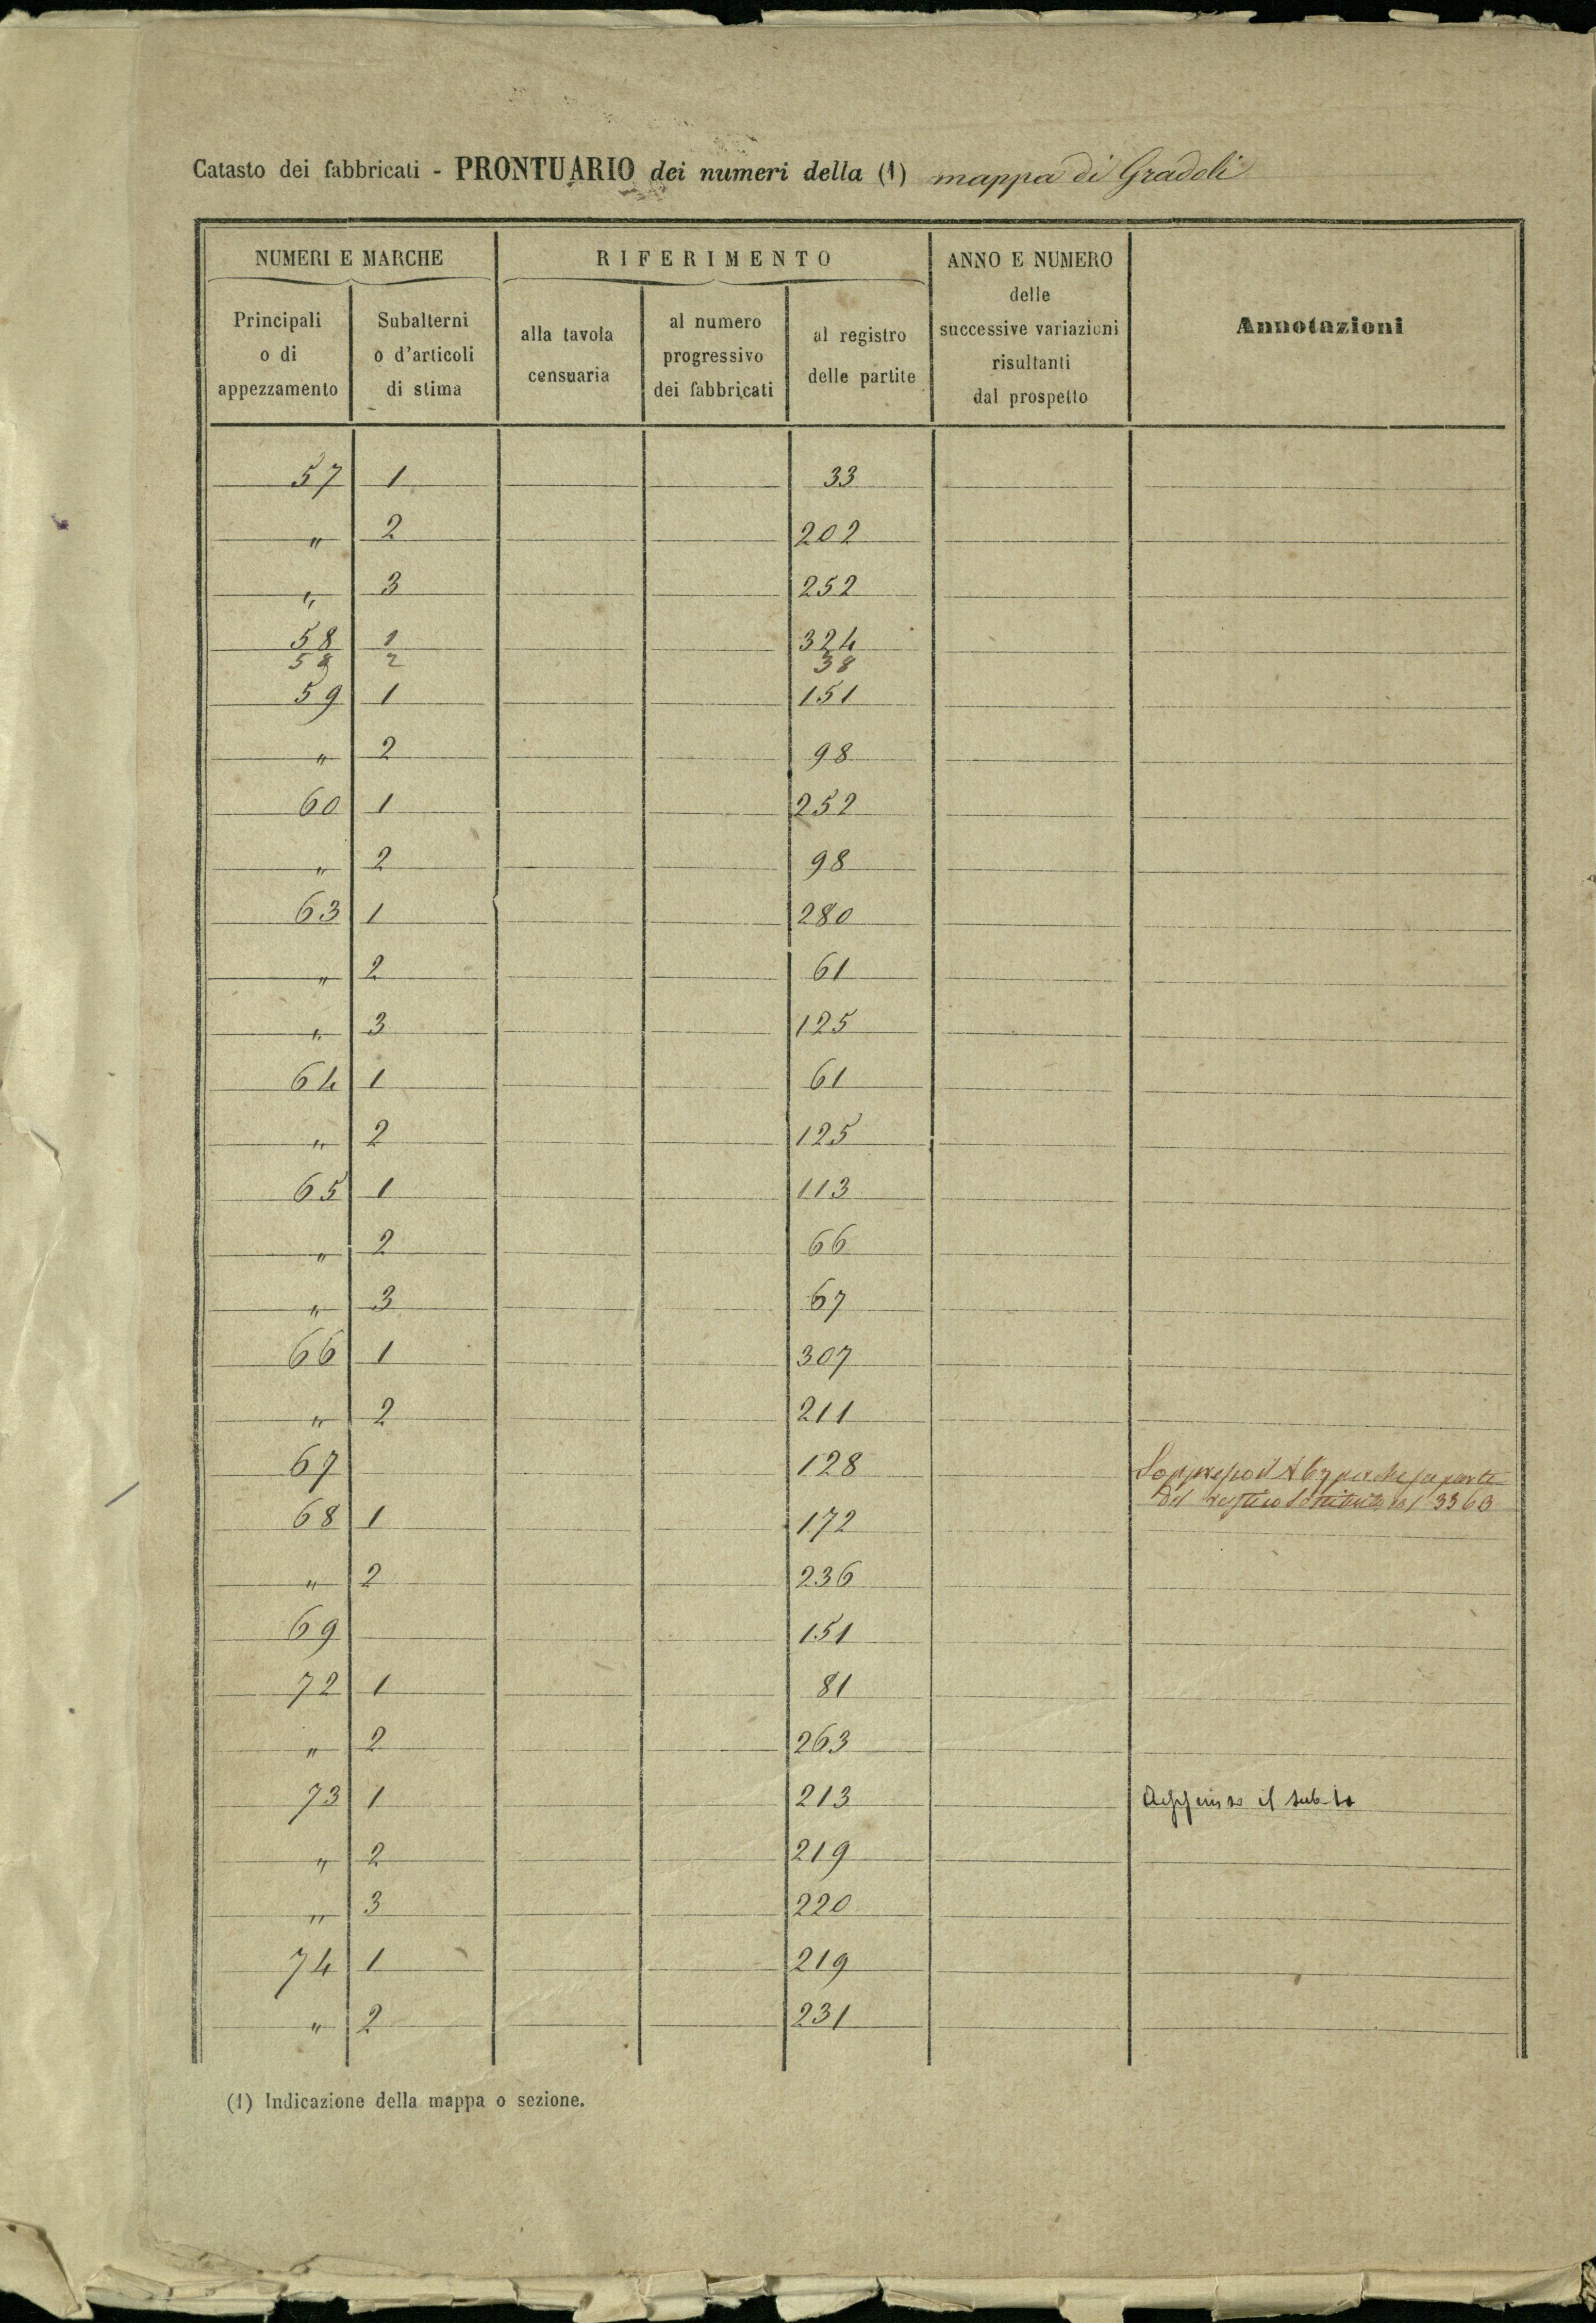 Catasto dei fabbricati - PRONTUARIO dei numeri della (1) mappa di Gradoli
NUMERI E MARCHE
RIFERIMENTO
ANNO E NUMERO
delle
successive variazioni
risultanti
dal prospetto
Annotazioni
Principali
o di
appezzamento
Subalterni
o d'articoli
di stima
alla tavola
censuaria
al numero
progressivo
dei fabbricati
al registro
delle partite
57 1 33
" 2 202
" 3 252
58 1 324
58 2 38
59 1 151
" 2 98
60 1 252
" 2 98
63 1 280
" 2 61
" 3 125
64 1 61
" 2 125
65 1 113
" 2 66
" 3 67
66 1 307
" 2 211
67 128 il 67 perche fa parte
del 3363
68 1 172
" 2 236
69 151
72 1 81
" 2 263
73 1 213 Aggiunso il sub.
" 2 219
" 3 220
74 1 219
" 2 231
(1) Indicazione della mappa o sezione.